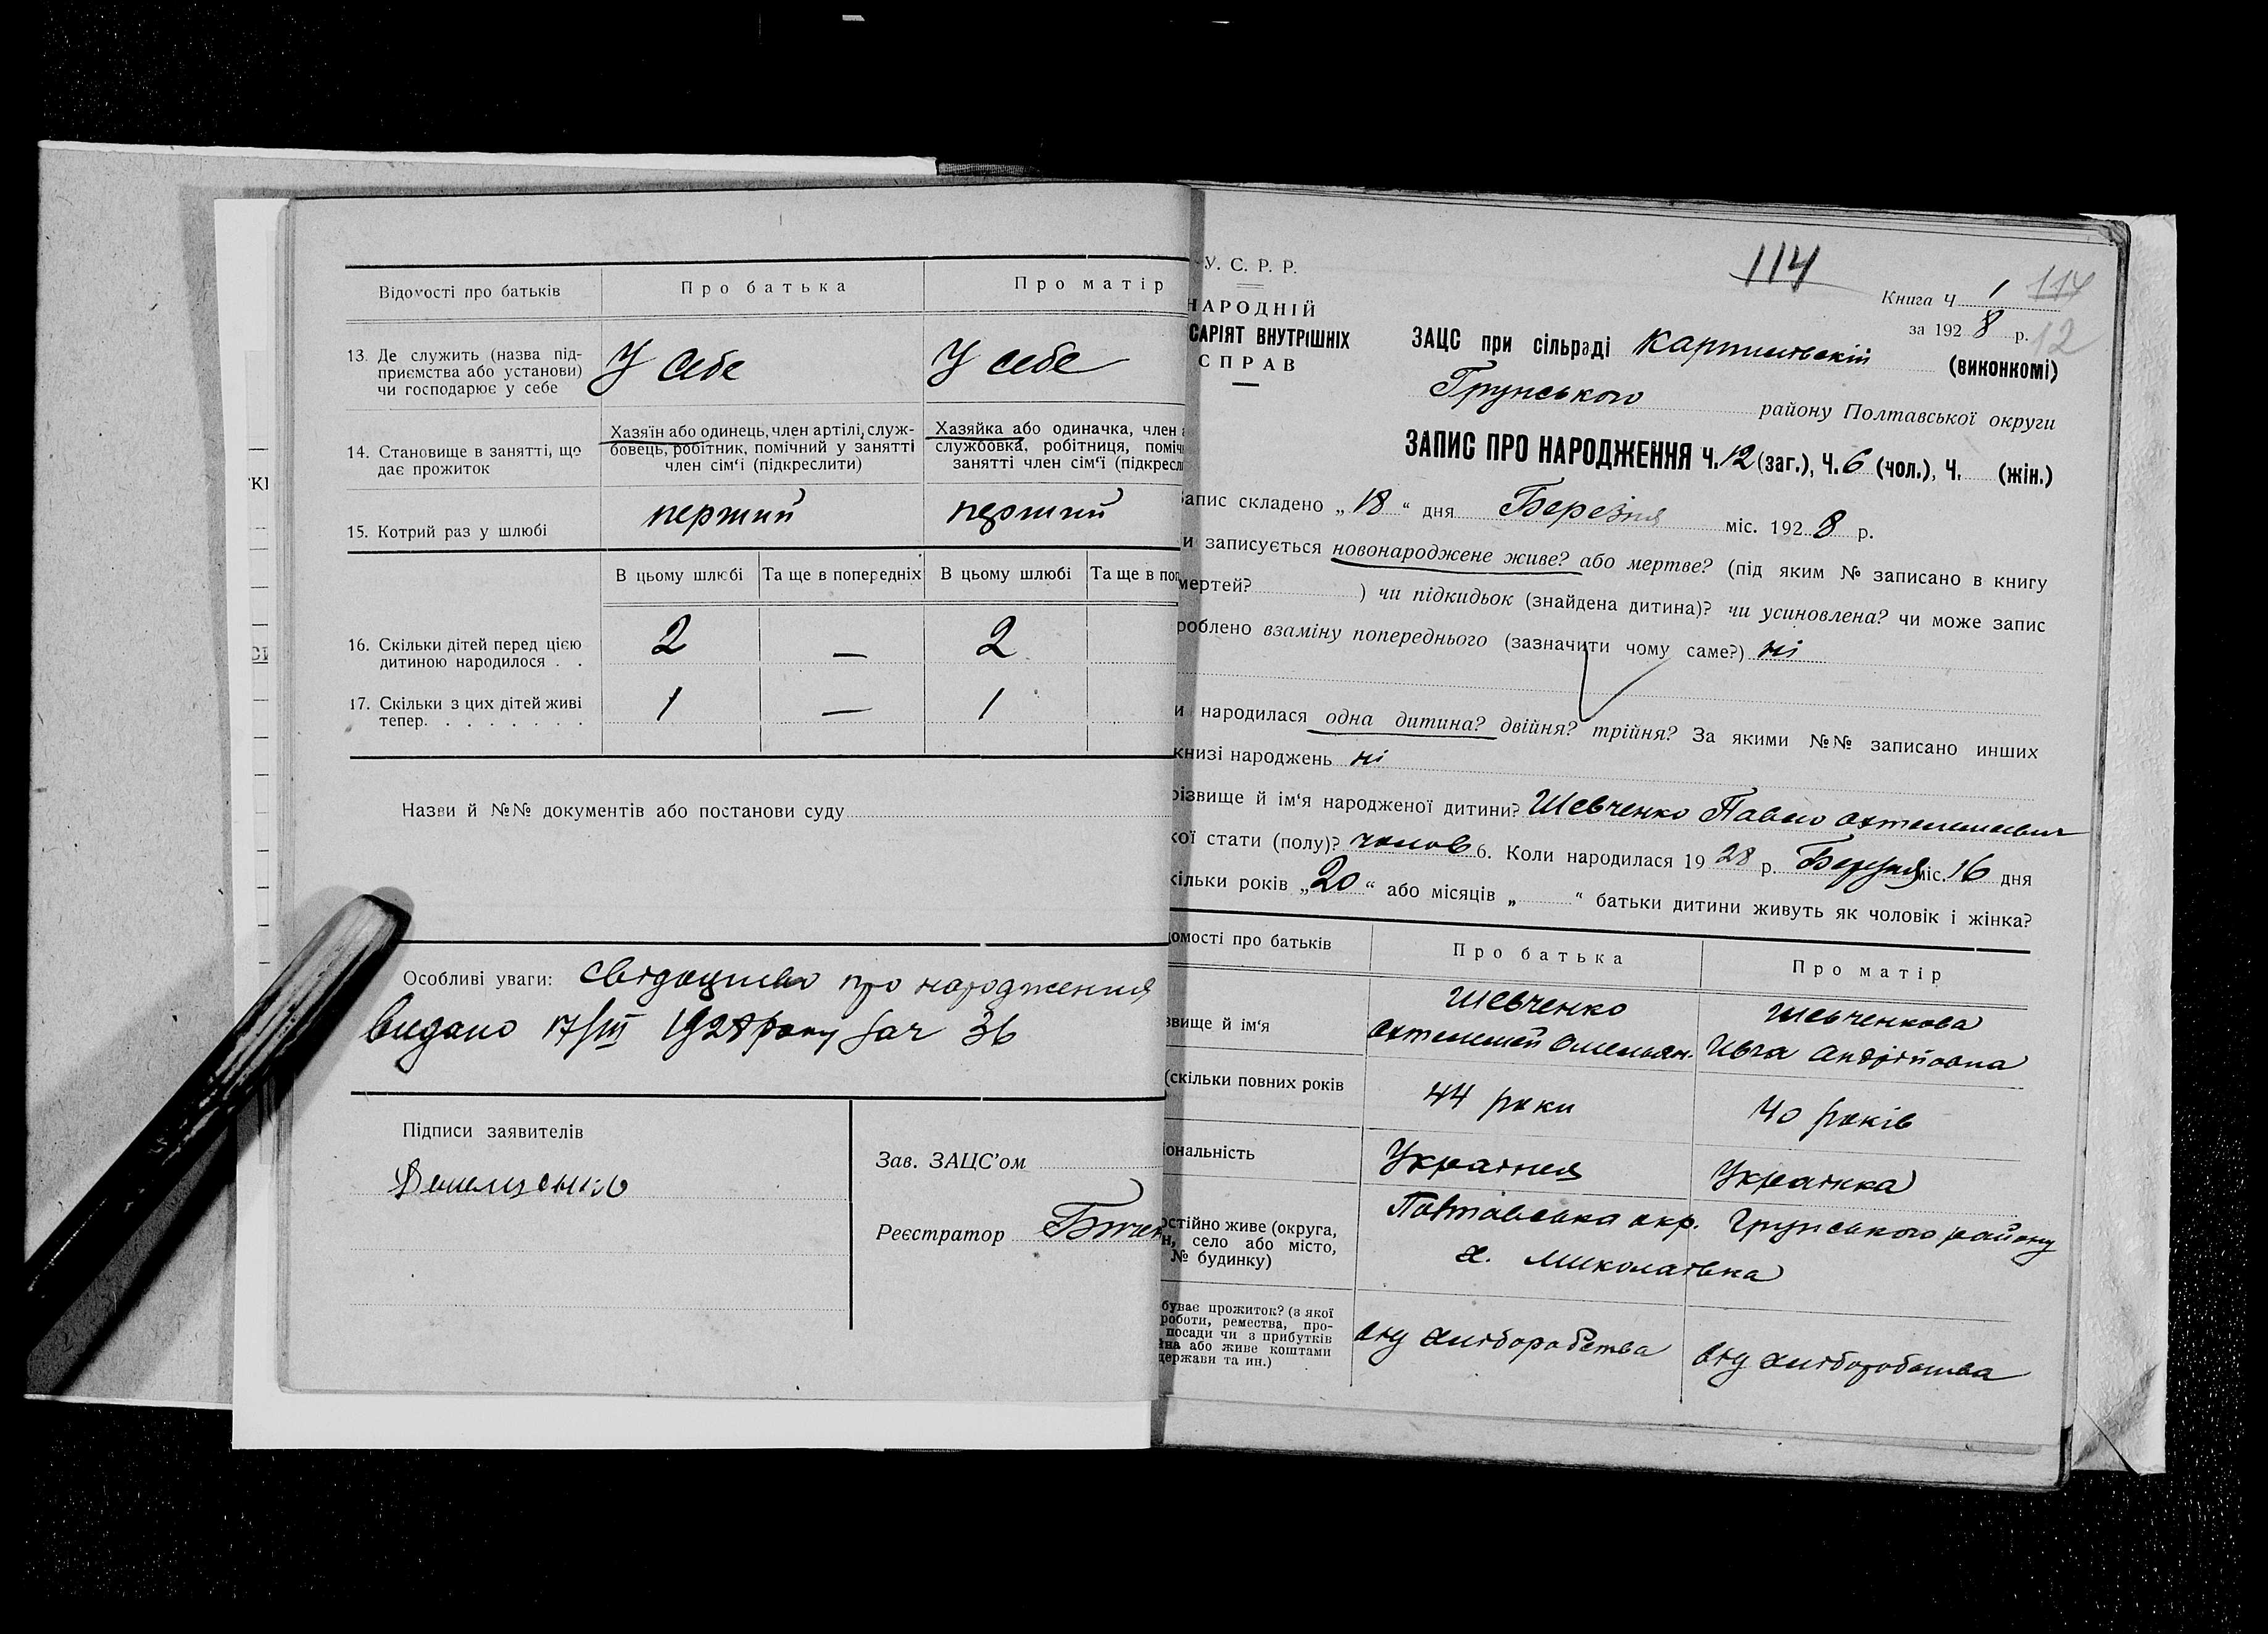 Відомості про батьків
Про батька
Про матір
13. Де служить (назва під-
приємства або установи)
чи господарює у себе
У себе
У себе
14. Становище в занятті, що
дає прожиток
Хазяїн або одинець, член артілі, служ-
бовець, робітник, помічний у занятті
член сім'ї (підкреслити)
Хазяйка або одиначка, член
службовка, робітниця, поміч
занятті член сім'ї (підкресл
15. Котрий раз у шлюбі
перший
перший
В цьому шлюбі
Та ще в попередніх
В цьому шлюбі
Та ще в поп
16. Скільки дітей перед цією
дитиною народилося . .
2
—
2
17. Скільки з цих дітей живі
тепер. . . . . . . .
1
—
1
Назви й №№ документів або постанови суду
Особливі уваги:
про народження
видано 17/III 1928 року 36
Підписи заявителів
Зав. ЗАЦС'ом
Реєстратор
У. С. Р. Р.
НАРОДНІЙ
САРІЯТ ВНУТРІШНІХ
СПРАВ
114
Книга Ч 1
114
за 1928 р.
12
ЗАЦС при сільраді
(виконкомі)
Грунського району Полтавської округи
ЗАПИС ПРО НАРОДЖЕННЯ Ч. 12 (заг.), Ч. 6 (чол.), Ч. (жін.)
Запис складено „18“ дня Березня міс. 1928 р.
и записується новонароджене живе? або мертве? (під яким № записано в книгу
мертей? ) чи підкидьок (знайдена дитина)? чи усиновлена? чи може запис
роблено взаміну попереднього (зазначити чому саме?) ні
и народилася одна дитина? двійня? трійня? За якими №№ записано инших
книзі народжень ні
різвище й ім'я народженої дитини? Шевченко Павло
кої стати (полу)? чолов 6. Коли народилася 1928 р. Березня міс. 16 дня
кільки років „20“ або місяців „ “ батьки дитини живуть як чоловік і жінка?
омості про батьків
Про батька
Про матір
звище й ім'я
Шевченко
Омельян.
Шевченкова
Ивга Андріївна
(скільки повних років
44 роки
40 років
іональність
Українець
Українка
остійно живе (округа,
н, село або місто,
№ будинку)
Полтавська окр. Грунського району
х. Миколаївка
буває прожиток? (з якої
роботи, ремества, про-
посади чи з прибутків
їна або живе коштами
держави та ин.)
від хліборобства
від хліборобства